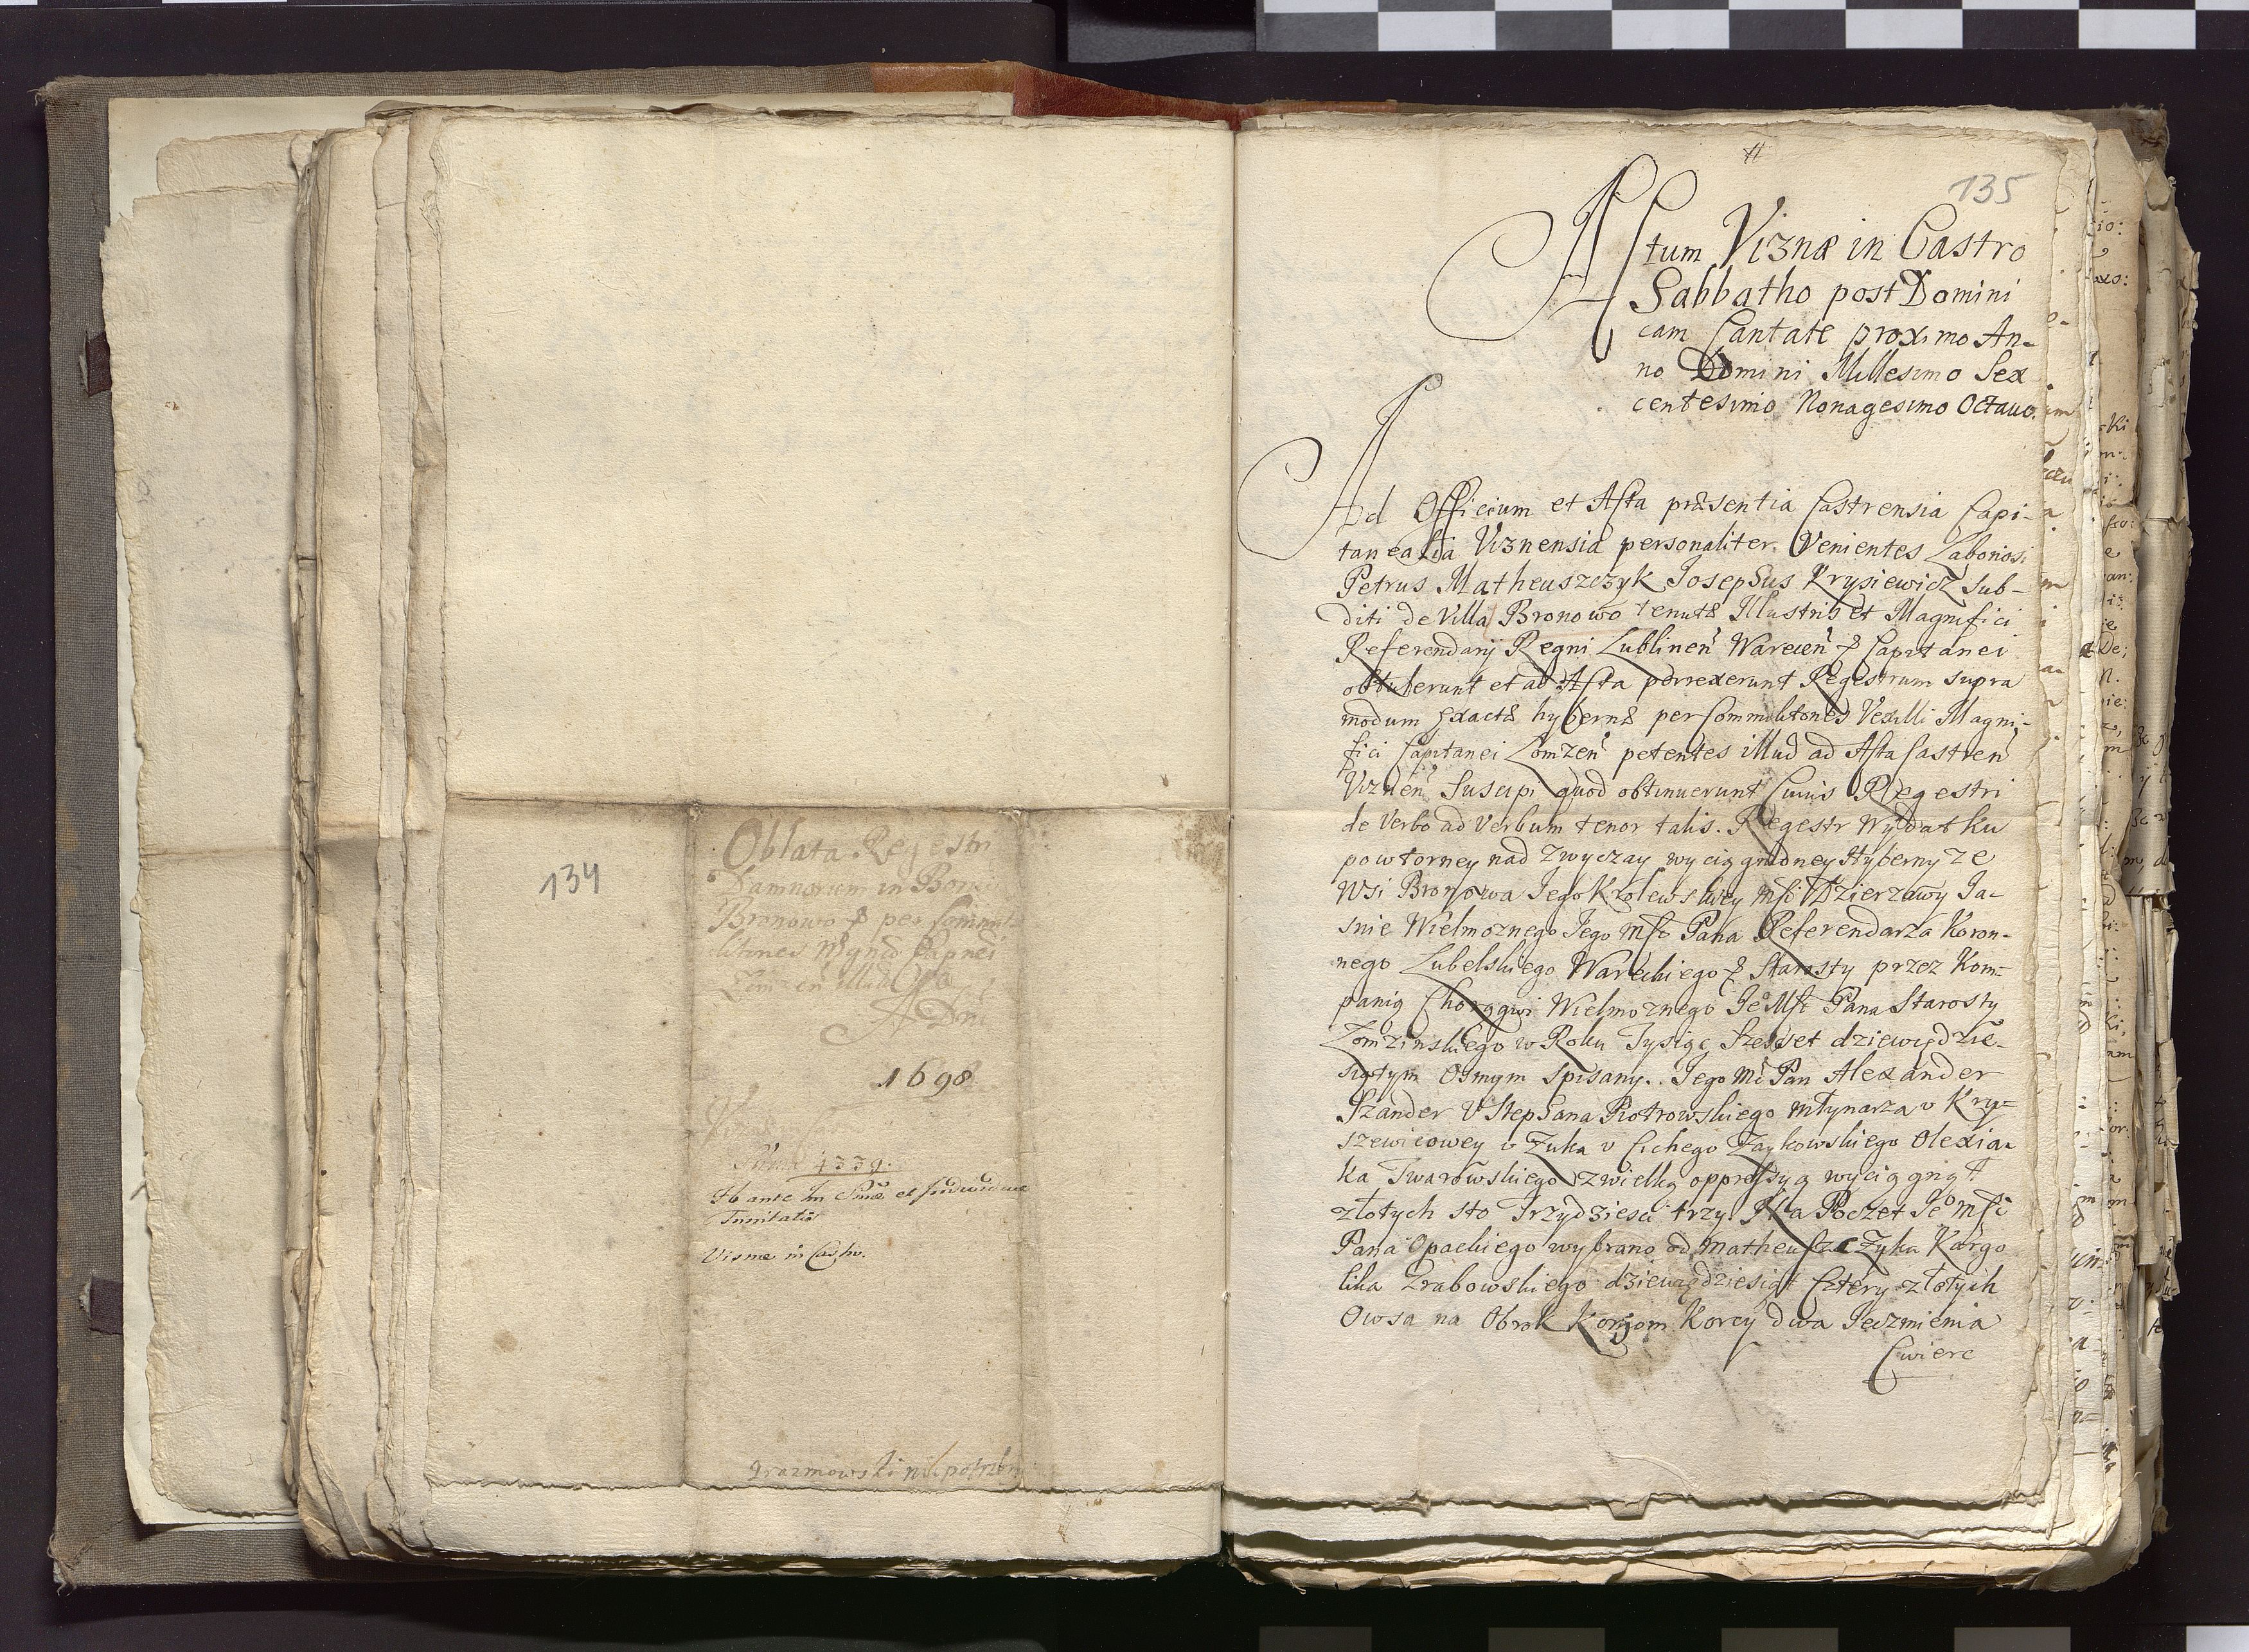 134
Oblata Regestri
Damnorum in Bonis
Bronowo & per Commi-
litones Mgnci Capnei
Lomzen
A Dni
1698
Suma 4339.
Fb ante in Smæ et Individuæ
Trinitatis
Visnæ in Castro.
135
Actum Viznæ in Castro
Sabbatho post Domini
cam Cantate proximo An-
no Domini Millesimo Sex
centesimo Nonagesimo Octavo.
Ad Officium et Acta præsentia Castrensia Capi-
tanealia Viznensia personaliter Venientes Laboriosi
Petrus Matheuszczyk Josephus Krysiewicz Sub-
diti de Villa Bronowo tenutæ Illustris et Magnifici
Referendarij Regni Lublinen Warecen & Capitanei
obtulerunt et ad Acta porrexerunt Regestrum supra
modum exactæ hybernæ per Commilitones Vexilli Magni-
fici Capitanei Lomzen petentes illud ad Acta Castren
Viznen Suscipi quod obtinuerunt Cuius Regestri
de Verbo ad Verbum tenor talis. Regestr Wydatku
powtorney nad zwyczay wyciągnioney Hyberny ze
Wsi Bronowa Jego Krolewskiey Msci Dzierzawy Ja-
snie Wielmoznego Jego Msci Pana Referendarza Koron-
nego Lubelskiego Wareckiego & Starosty przez Kom-
panią Chorągwi Wielmoznego Je Msci Pana Starosty
Łomzinskiego w Roku Tysiąc Szescset dziewiędzie-
siątym Osmym spisany. Jego Mc Pan Alexander
Szander V Stephana Piotrowskiego Młynarza v Kry-
szewicowey v Zuka v Cichego Zaykowskiego Olexia-
ka Twarowskiego z wielką oppressyą wyciągnął
złotych sto Trzydziesci trzy. Na Poczet Je Msci
Pana Opackiego wybrano od Matheuszczyka Kargo
lika Grabowskiego dziewiędziesiąt Cztery złotych
Owsa na Obrok Koniom Korcy dwa Jeczmienia
Cwierc